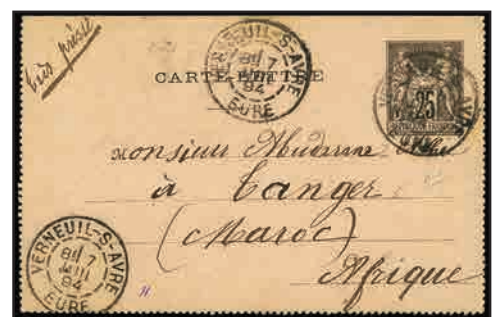 très pressé
CARTE-LETTRE
VERNEUIL-S-AVRE
7
94
EURE
25
RÉPUBLIQUE FRANÇAISE
Monsieur
à Tanger
(Maroc)
Afrique
VERNEUIL-S-AVRE
7
94
EURE